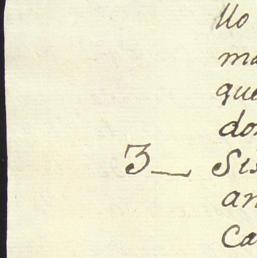 llo
ma
que
don
3_ Sis
an
Ca